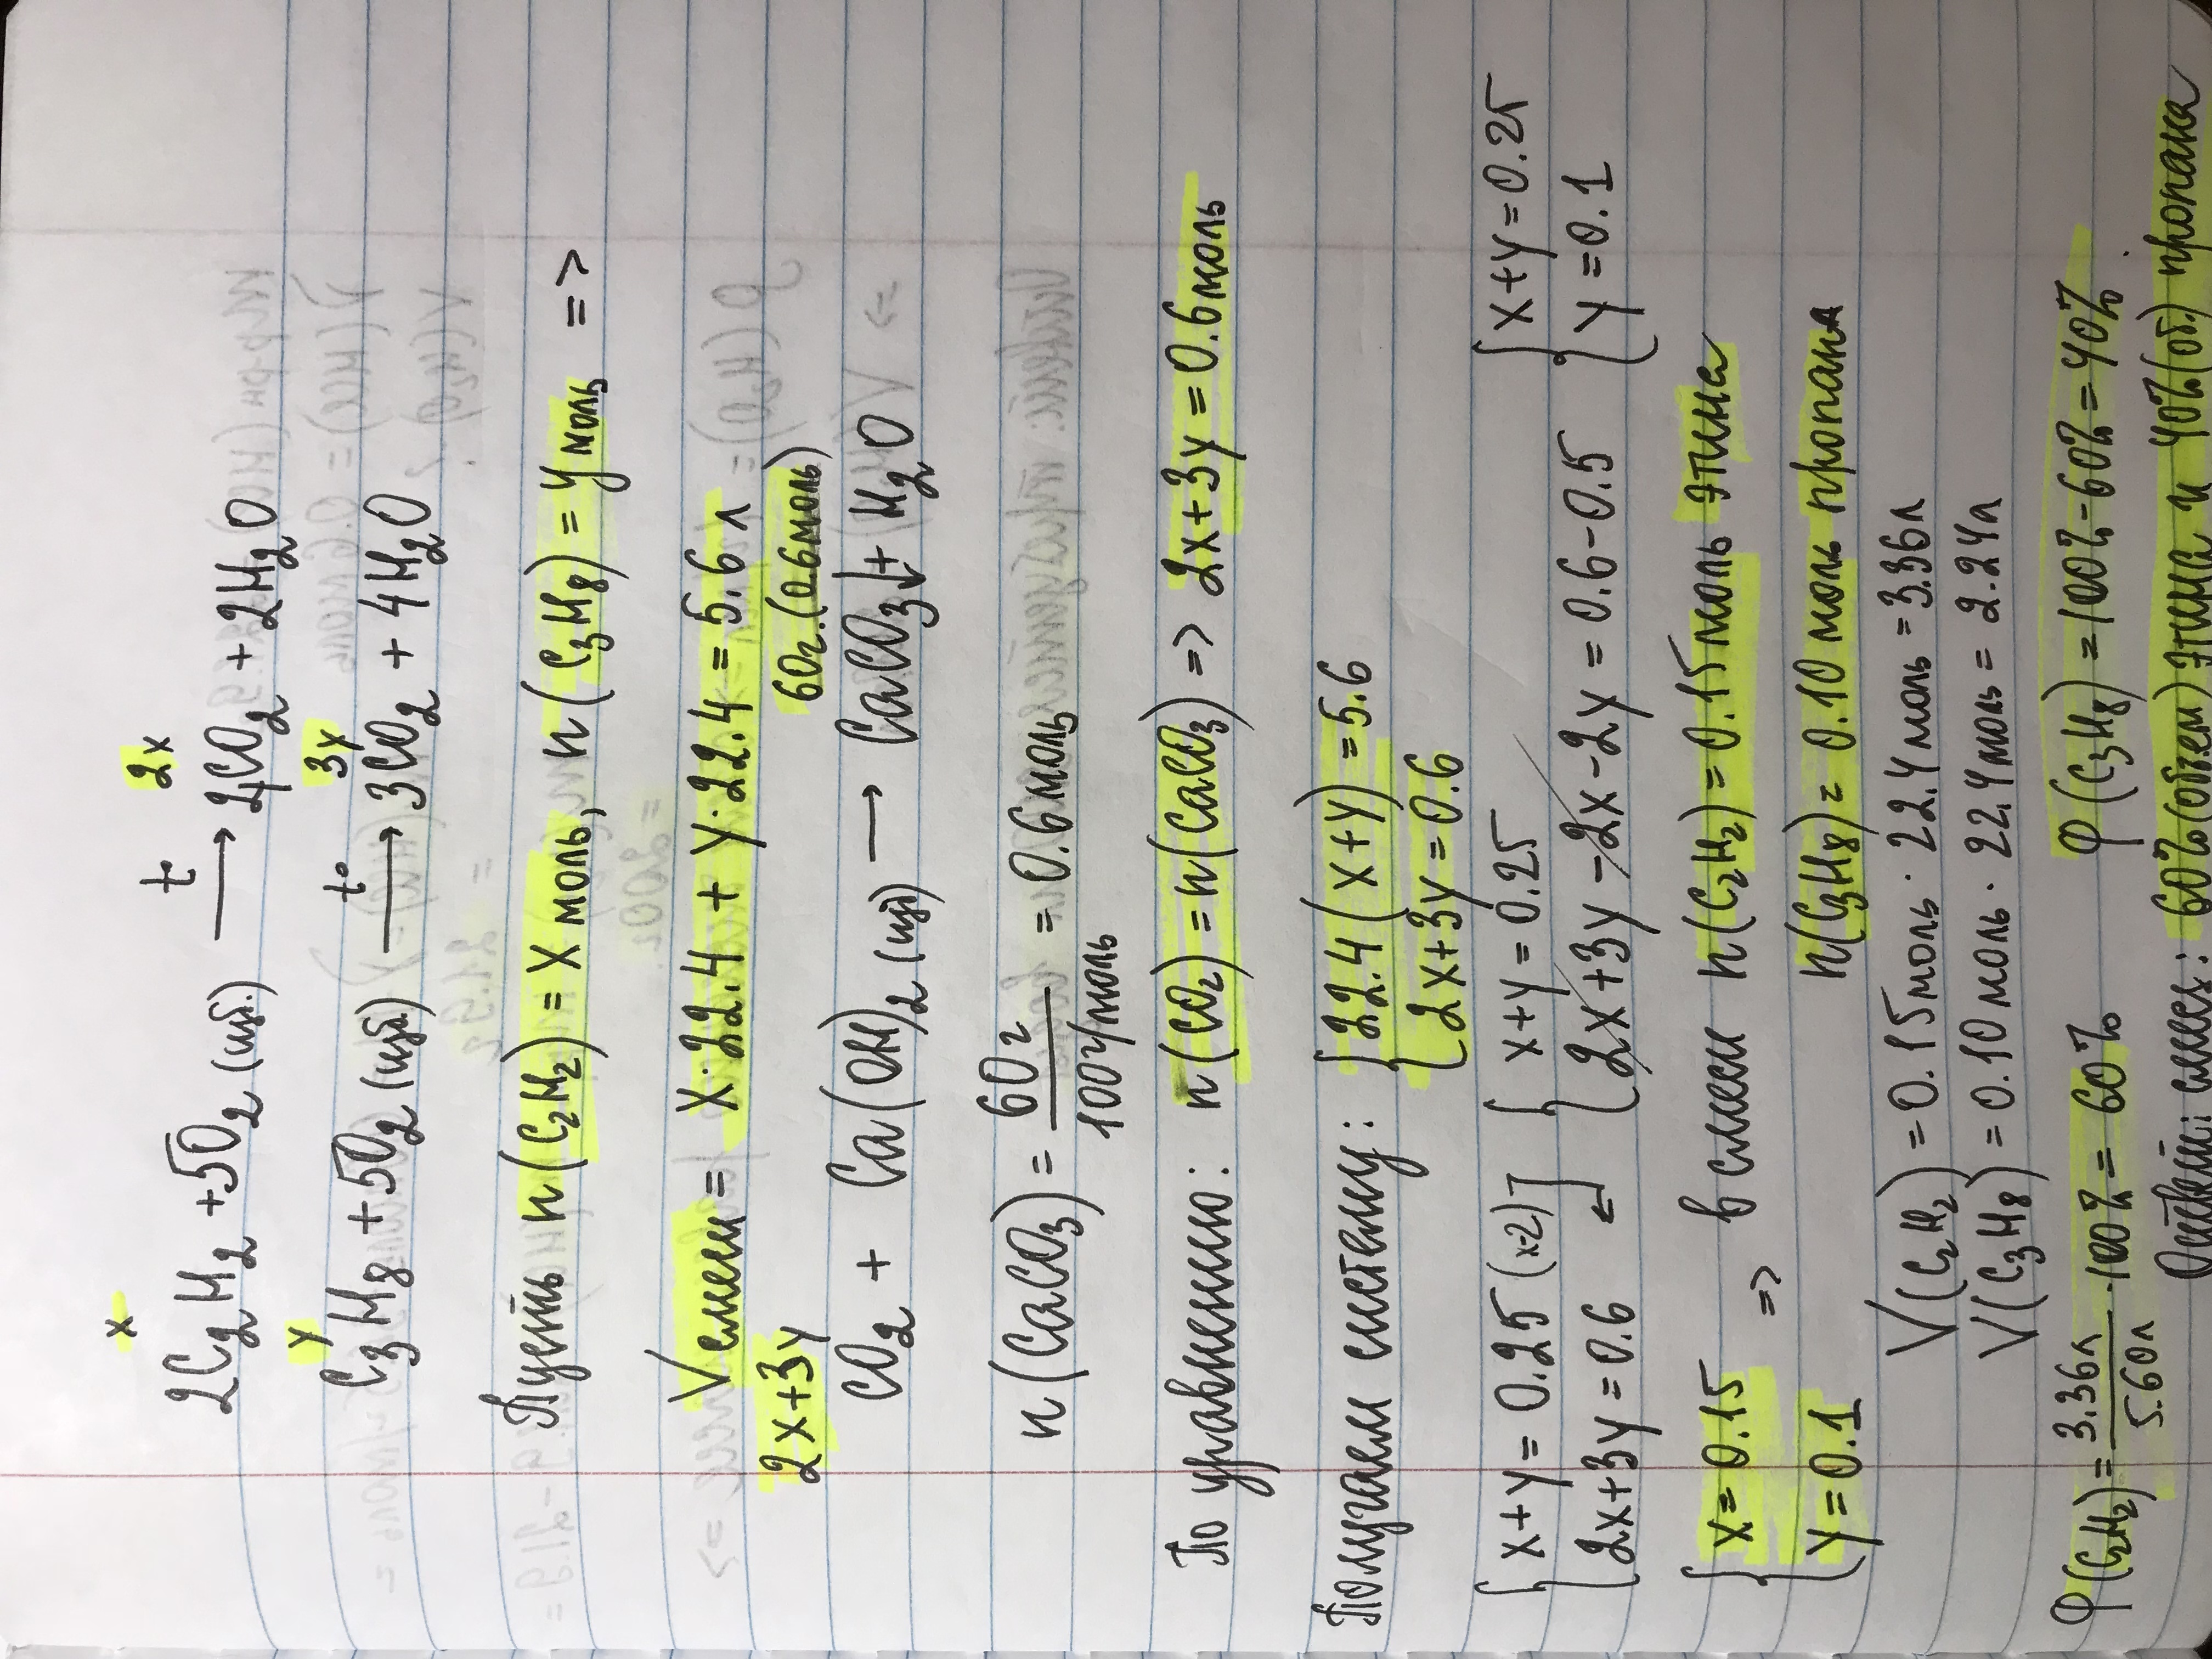 x 2x
2C₂H₂ + 5O₂ (изб.) —t°→ 4CO₂ + 2H₂O
y 3y
C₃H₈ + 5O₂ (изб) —t°→ 3CO₂ + 4H₂O
Пусть n(C₂H₂) = x моль, n(C₃H₈) = y моль =>
Vсмеси = x·22.4 + y·22.4 = 5.6 л
2x+3y 60г.(0.6моль)
CO₂ + Ca(OH)₂ (изб) → CaCO₃↓ + H₂O
n(CaCO₃) = 60г / 100г/моль = 0.6 моль
По уравнению: n(CO₂) = n(CaCO₃) => 2x+3y = 0.6моль
Получаем систему: { 22.4(x+y) = 5.6
2x+3y = 0.6
{ x+y = 0.25 (x2) { x+y = 0.25 { x+y = 0.25
2x+3y = 0.6 2x+3y-2x-2y = 0.6-0.5 y = 0.1
{ x = 0.15 => в смеси n(C₂H₂) = 0.15моль этина
y = 0.1 n(C₃H₈) = 0.10 моль пропана
V(C₂H₂) = 0.15моль · 22.4моль = 3.36л
V(C₃H₈) = 0.10 моль · 22.4моль = 2.24л
φ(C₂H₂) = 3.36л / 5.60л · 100% = 60% φ(C₃H₈) = 100%-60% = 40%.
Ответ: смес: 60% (объем) этина и 40% (об.) пропана